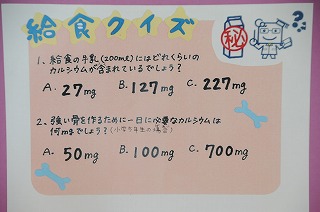 給食クイズ
秘
?
1、給食の牛乳(200ml)にはどれくらいの
カルシウムが含まれているでしょう?
A. 27mg B. 127mg C. 227mg
2、強い骨を作るために一日に必要なカルシウムは
何mgでしょう?(小学5年生の場合)
A. 50mg B. 100mg C. 700mg